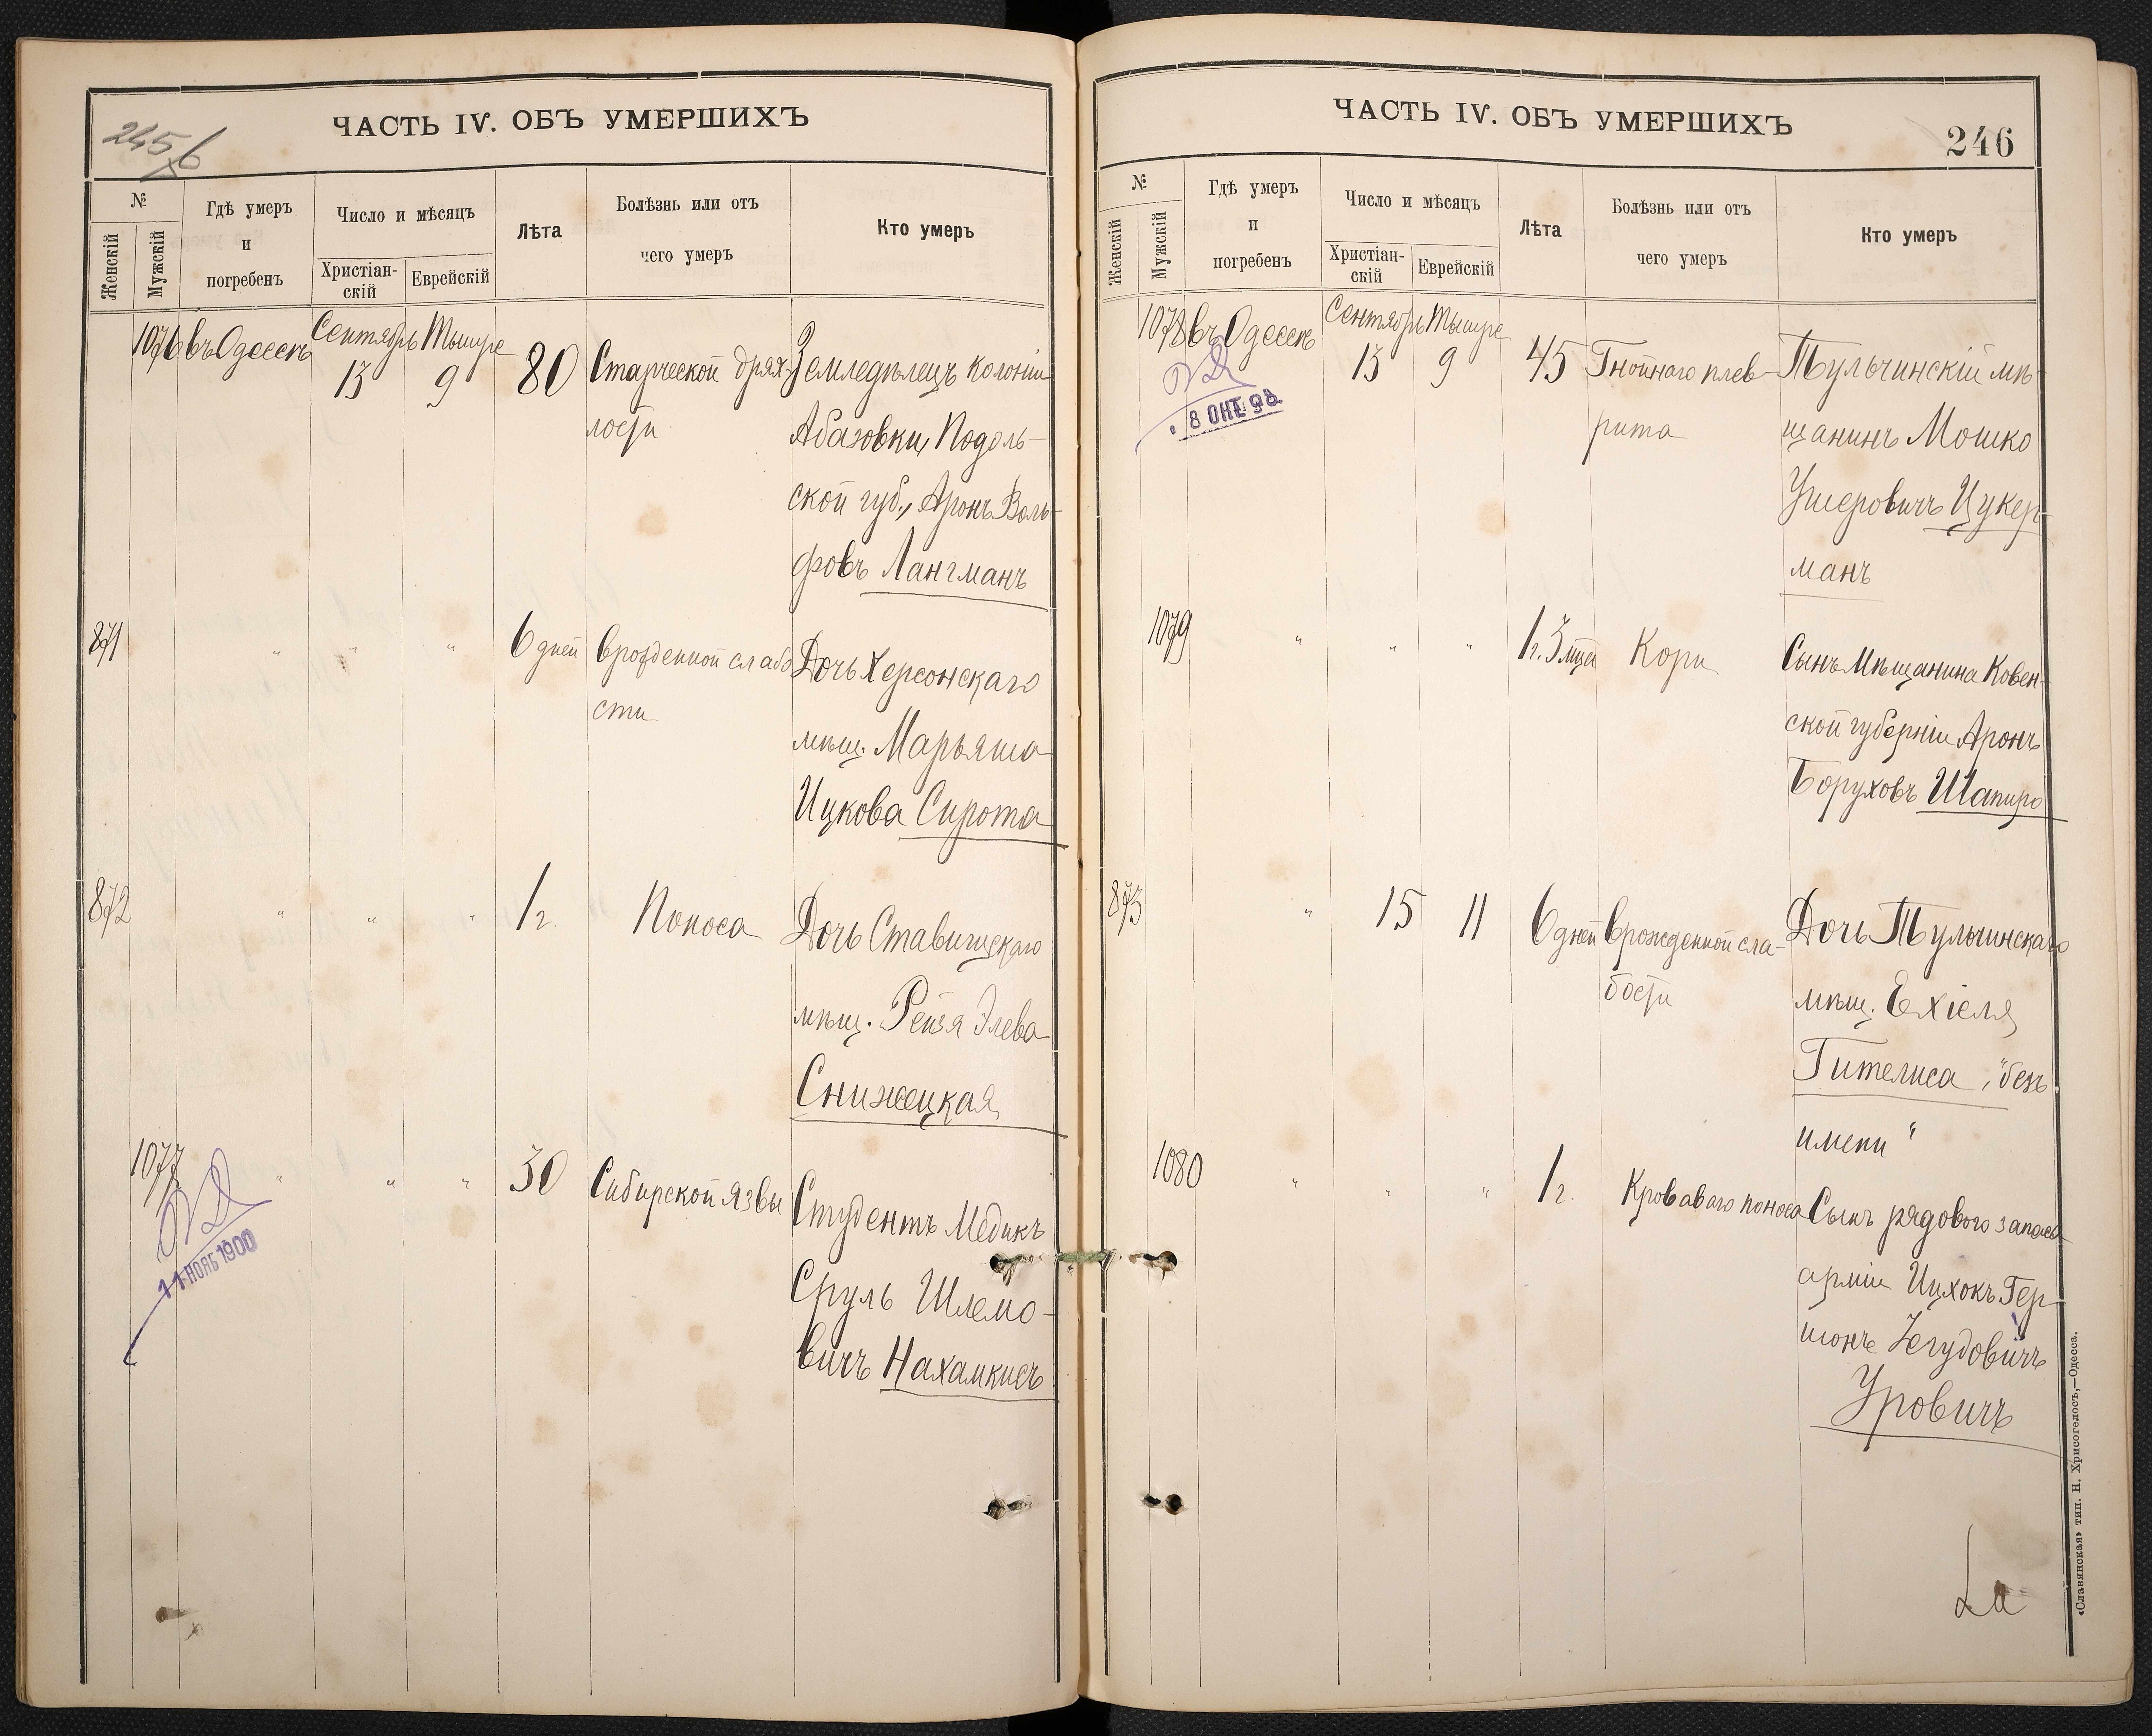 ЧАСТЬ IV. ОБЪ УМЕРШИХЪ
№
Женскій
Мужскій
Гдѣ умеръ
и
погребенъ
Число и мѣсяцъ
Христіан-
скій
Еврейскій
Лѣта
Болѣзнь или отъ
чего умеръ
Кто умеръ
1076 въ Одессѣ Сентябрь 13 Тышре 9 80 Старческой дрях- Земледѣлецъ колоніи
лости Абазовки, Подоль-
ской губ., Аронъ Воль-
фовъ Лангманъ
871 " " " 6 дней врожденной слабо Дочь Херсонскаго
сти мѣщ. Марьяша
Ицкова Сирота
872 " " " 1 г. Поноса Дочь Ставищскаго
мѣщ. Рейзя Элева
Снижецкая
1077 " " " 30 Сибирской язвы Студентъ Медикъ
Сруль Шлемо-
вичъ Нахамкисъ
11 НОЯБ 1900
ЧАСТЬ IV. ОБЪ УМЕРШИХЪ
246
№
Женскій
Мужскій
Гдѣ умеръ
и
погребенъ
Число и мѣсяцъ
Христіан-
скій
Еврейскій
Лѣта
Болѣзнь или отъ
чего умеръ
Кто умеръ
1078 въ Одессѣ Сентябрь 13 Тышре 9 45 Гнойнаго плев- Тульчинскій мѣ-
рита щанинъ Мошко
Ушеровичъ Цукер-
манъ
8 ОКТ 98
1079 " " " 1 г. 3 мцей Кори Сынъ Мѣщанина Ковен-
ской губерніи Аронъ
Боруховъ Шапиро
873 " 15 11 6 дней врожденной сла- Дочь Тульчинскаго
бости мѣщ. Ехіеля
Гителиса, "безъ
имени"
1080 " " " 1 г. Кроваваго поноса Сынъ рядового запаса
арміи Ицхокъ Гер-
шонъ Іегудовичъ
Уровичъ
«Славянская» тип. Н. Хрисогелосъ,—Одесса.